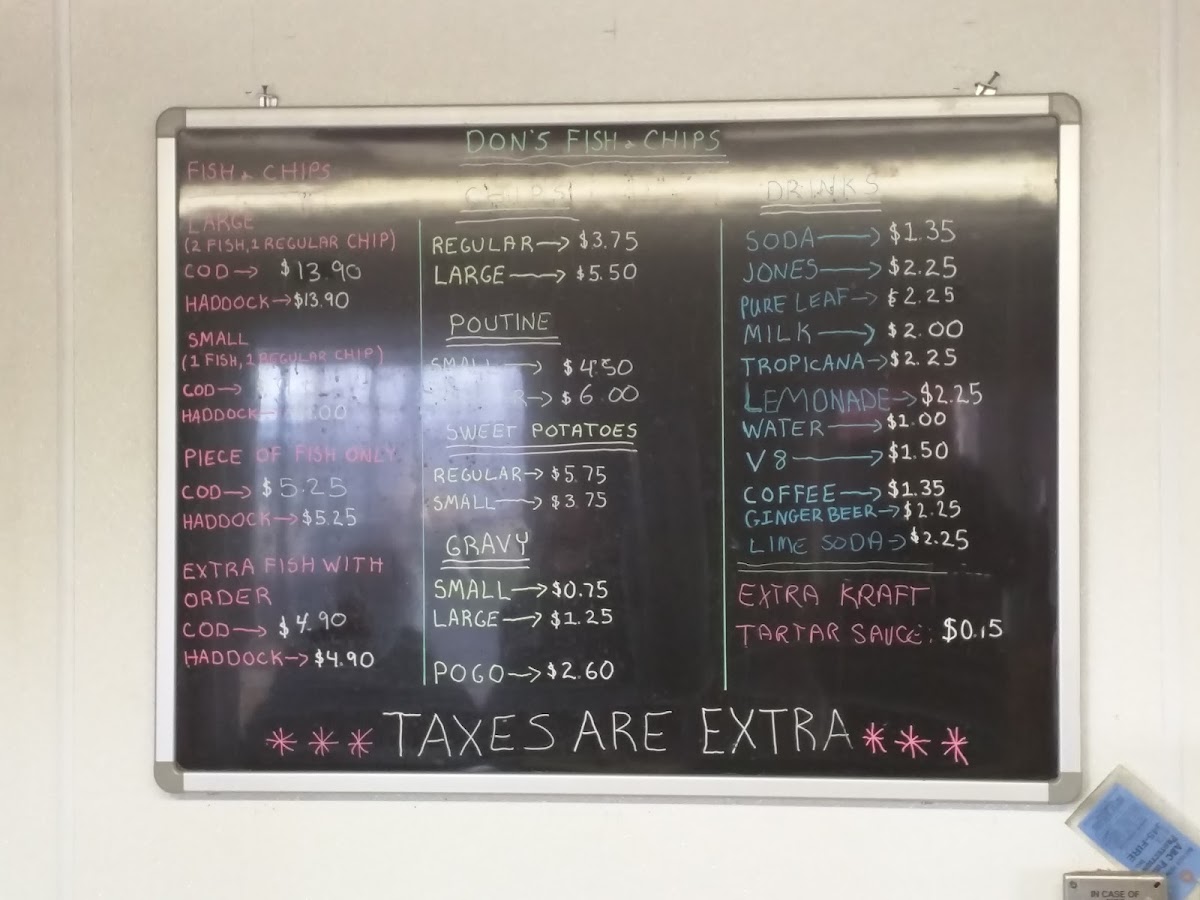 DON'S FISH & CHIPS
FISH & CHIPS
LARGE
(2 FISH, 1 REGULAR CHIP)
COD→ $13.90
HADDOCK→$13.90
SMALL
(1 FISH, 1 REGULAR CHIP)
COD→
HADDOCK→
PIECE OF FISH ONLY
COD→ $5.25
HADDOCK→$5.25
EXTRA FISH WITH
ORDER
COD→ $4.90
HADDOCK→$4.90
CHIPS
REGULAR→$3.75
LARGE→$5.50
POUTINE
SMALL→ $4.50
$6.00
SWEET POTATOES
REGULAR→$5.75
SMALL→$3.75
GRAVY
SMALL→$0.75
LARGE→$1.25
POGO→$2.60
DRINKS
SODA→$1.35
JONES→$2.25
PURE LEAF→$2.25
MILK→$2.00
TROPICANA→$2.25
LEMONADE→$2.25
WATER→$1.00
V8→$1.50
COFFEE→$1.35
GINGER BEER→$2.25
LIME SODA→$2.25
EXTRA KRAFT
TARTAR SAUCE: $0.15
*** TAXES ARE EXTRA ***
IN CASE OF